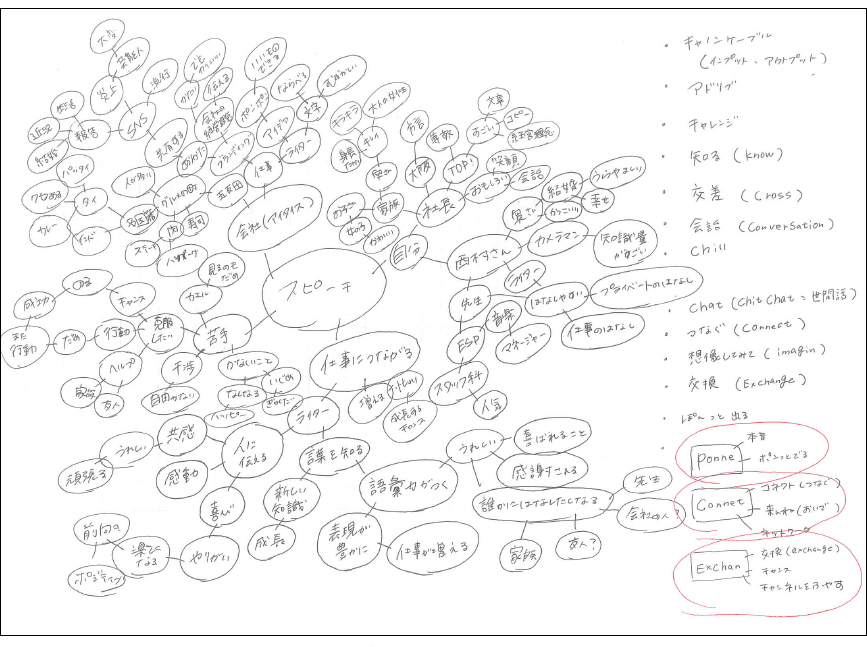 スピーチ
自分
社長
西村さん
会社(アイタイス)
苦手
仕事につながる
克服したい
チャンス
行動
だめ
また行動
成功
ヘルプ
家族
友人
カエル
干渉
自由がない
SNS
炎上
芸能人
流行
共有する
報告
結婚
近況
タイ
カレー
インド
パッタイ
多国籍
グルメの町
肉
寿司
ステーキ
五反田
仕事
ブランディング
アイデア
ライター
文字
大阪
方言
TOP!
すごい
文章
コピー
経営理念
おもしろい
笑顔
会話
家族
かわいい
キレイ
キラキラ
大人の女性
奥さん
結婚
うらやましい
幸せ
かっこいい
カメラマン
知識量がすごい
ライター
はなしやすい
プライベートのはなし
仕事のはなし
先生
音楽
マネージャー
ESP
スタッフ科
人気
増える
成長するチャンス
ライター
人に伝える
共感
うれしい
頑張る
感動
喜び
やりがい
楽しくなる
前向き
ポジティブ
ハッピー
かなしいこと
なくなる
いじめ
言葉を知る
新しい知識
成長
語彙力がつく
表現が豊かに
仕事が増える
うれしい
喜ばれること
感謝される
誰かにはなしたくなる
先生
会社の人?
友人?
家族
・キャノンケーブル
(インプット・アウトプット)
・アドリブ
・チャレンジ
・知る (know)
・交差 (Cross)
・会話 (Conversation)
Chill
・Chat (Chit Chat = 世間話)
・つなぐ (Connect)
・想像してみて (imagin)
・交換 (Exchange)
・ぽんっと出る
・
Ponne
本音
ポンッとでる
Connet
コネクト(つなぐ)
来んね(おいで)
ネットワーク
Exchan
交換 (exchange)
チャンス
チャンネルをふやす